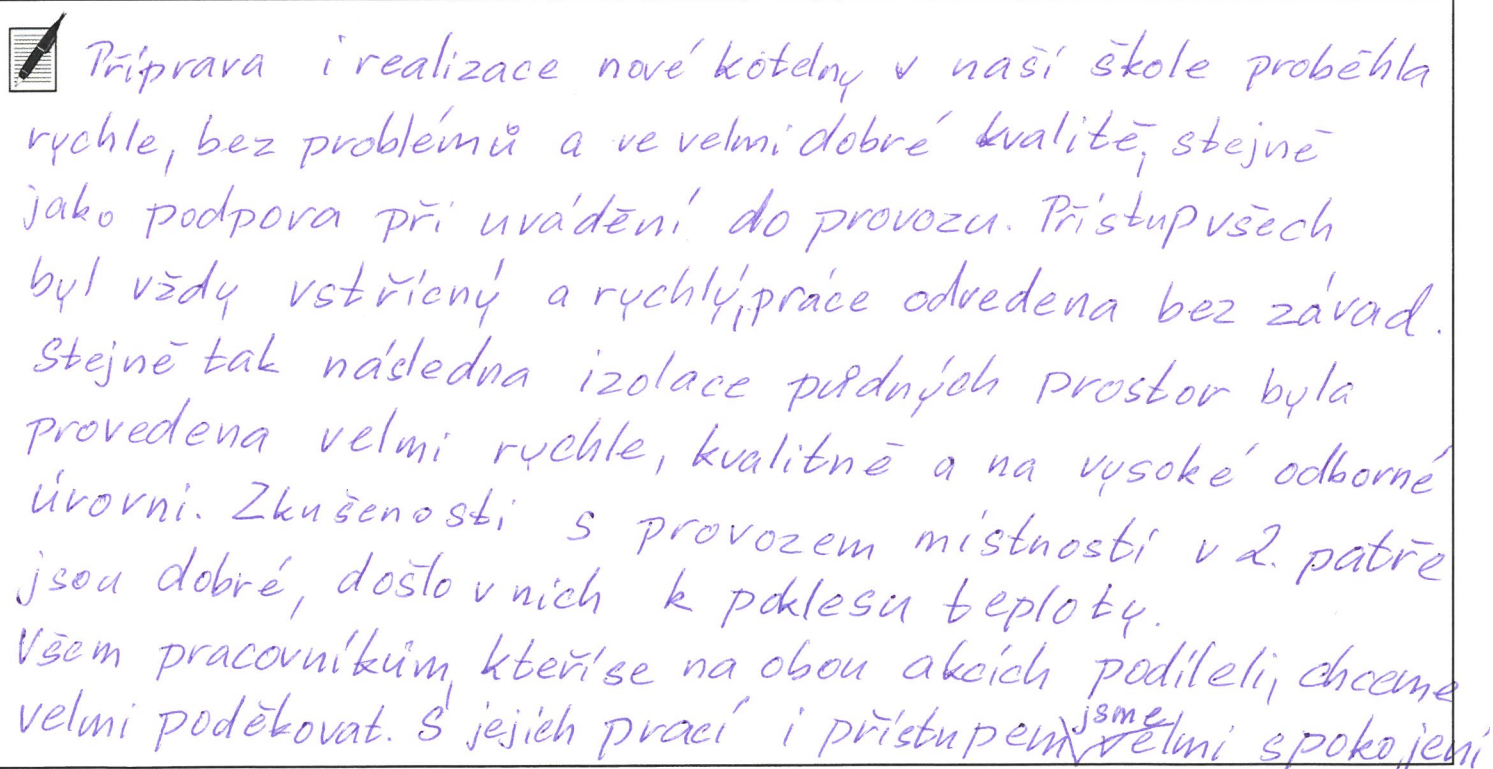 Příprava i realizace nové kotelny v naší škole proběhla
rychle, bez problémů a ve velmi dobré kvalitě, stejně
jako podpora při uvádění do provozu. Přístup všech
byl vždy vstřícný a rychlý, práce odvedena bez závad.
Stejně tak následna izolace půdných prostor byla
provedena velmi rychle, kvalitně a na vysoké odborné
úrovni. Zkušenosti s provozem místností v 2. patře
jsou dobré, došlo v nich k poklesu teploty.
Všem pracovníkům, kteří se na obou akcích podíleli, chceme
velmi poděkovat. S jejich prací i přístupem jsme velmi spokojení